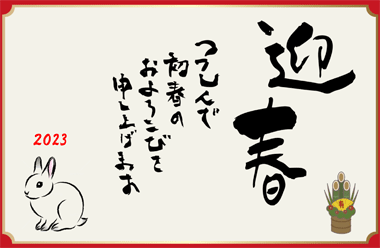 迎春
つつしんで
初春の
およろこびを
申し上げます
2023